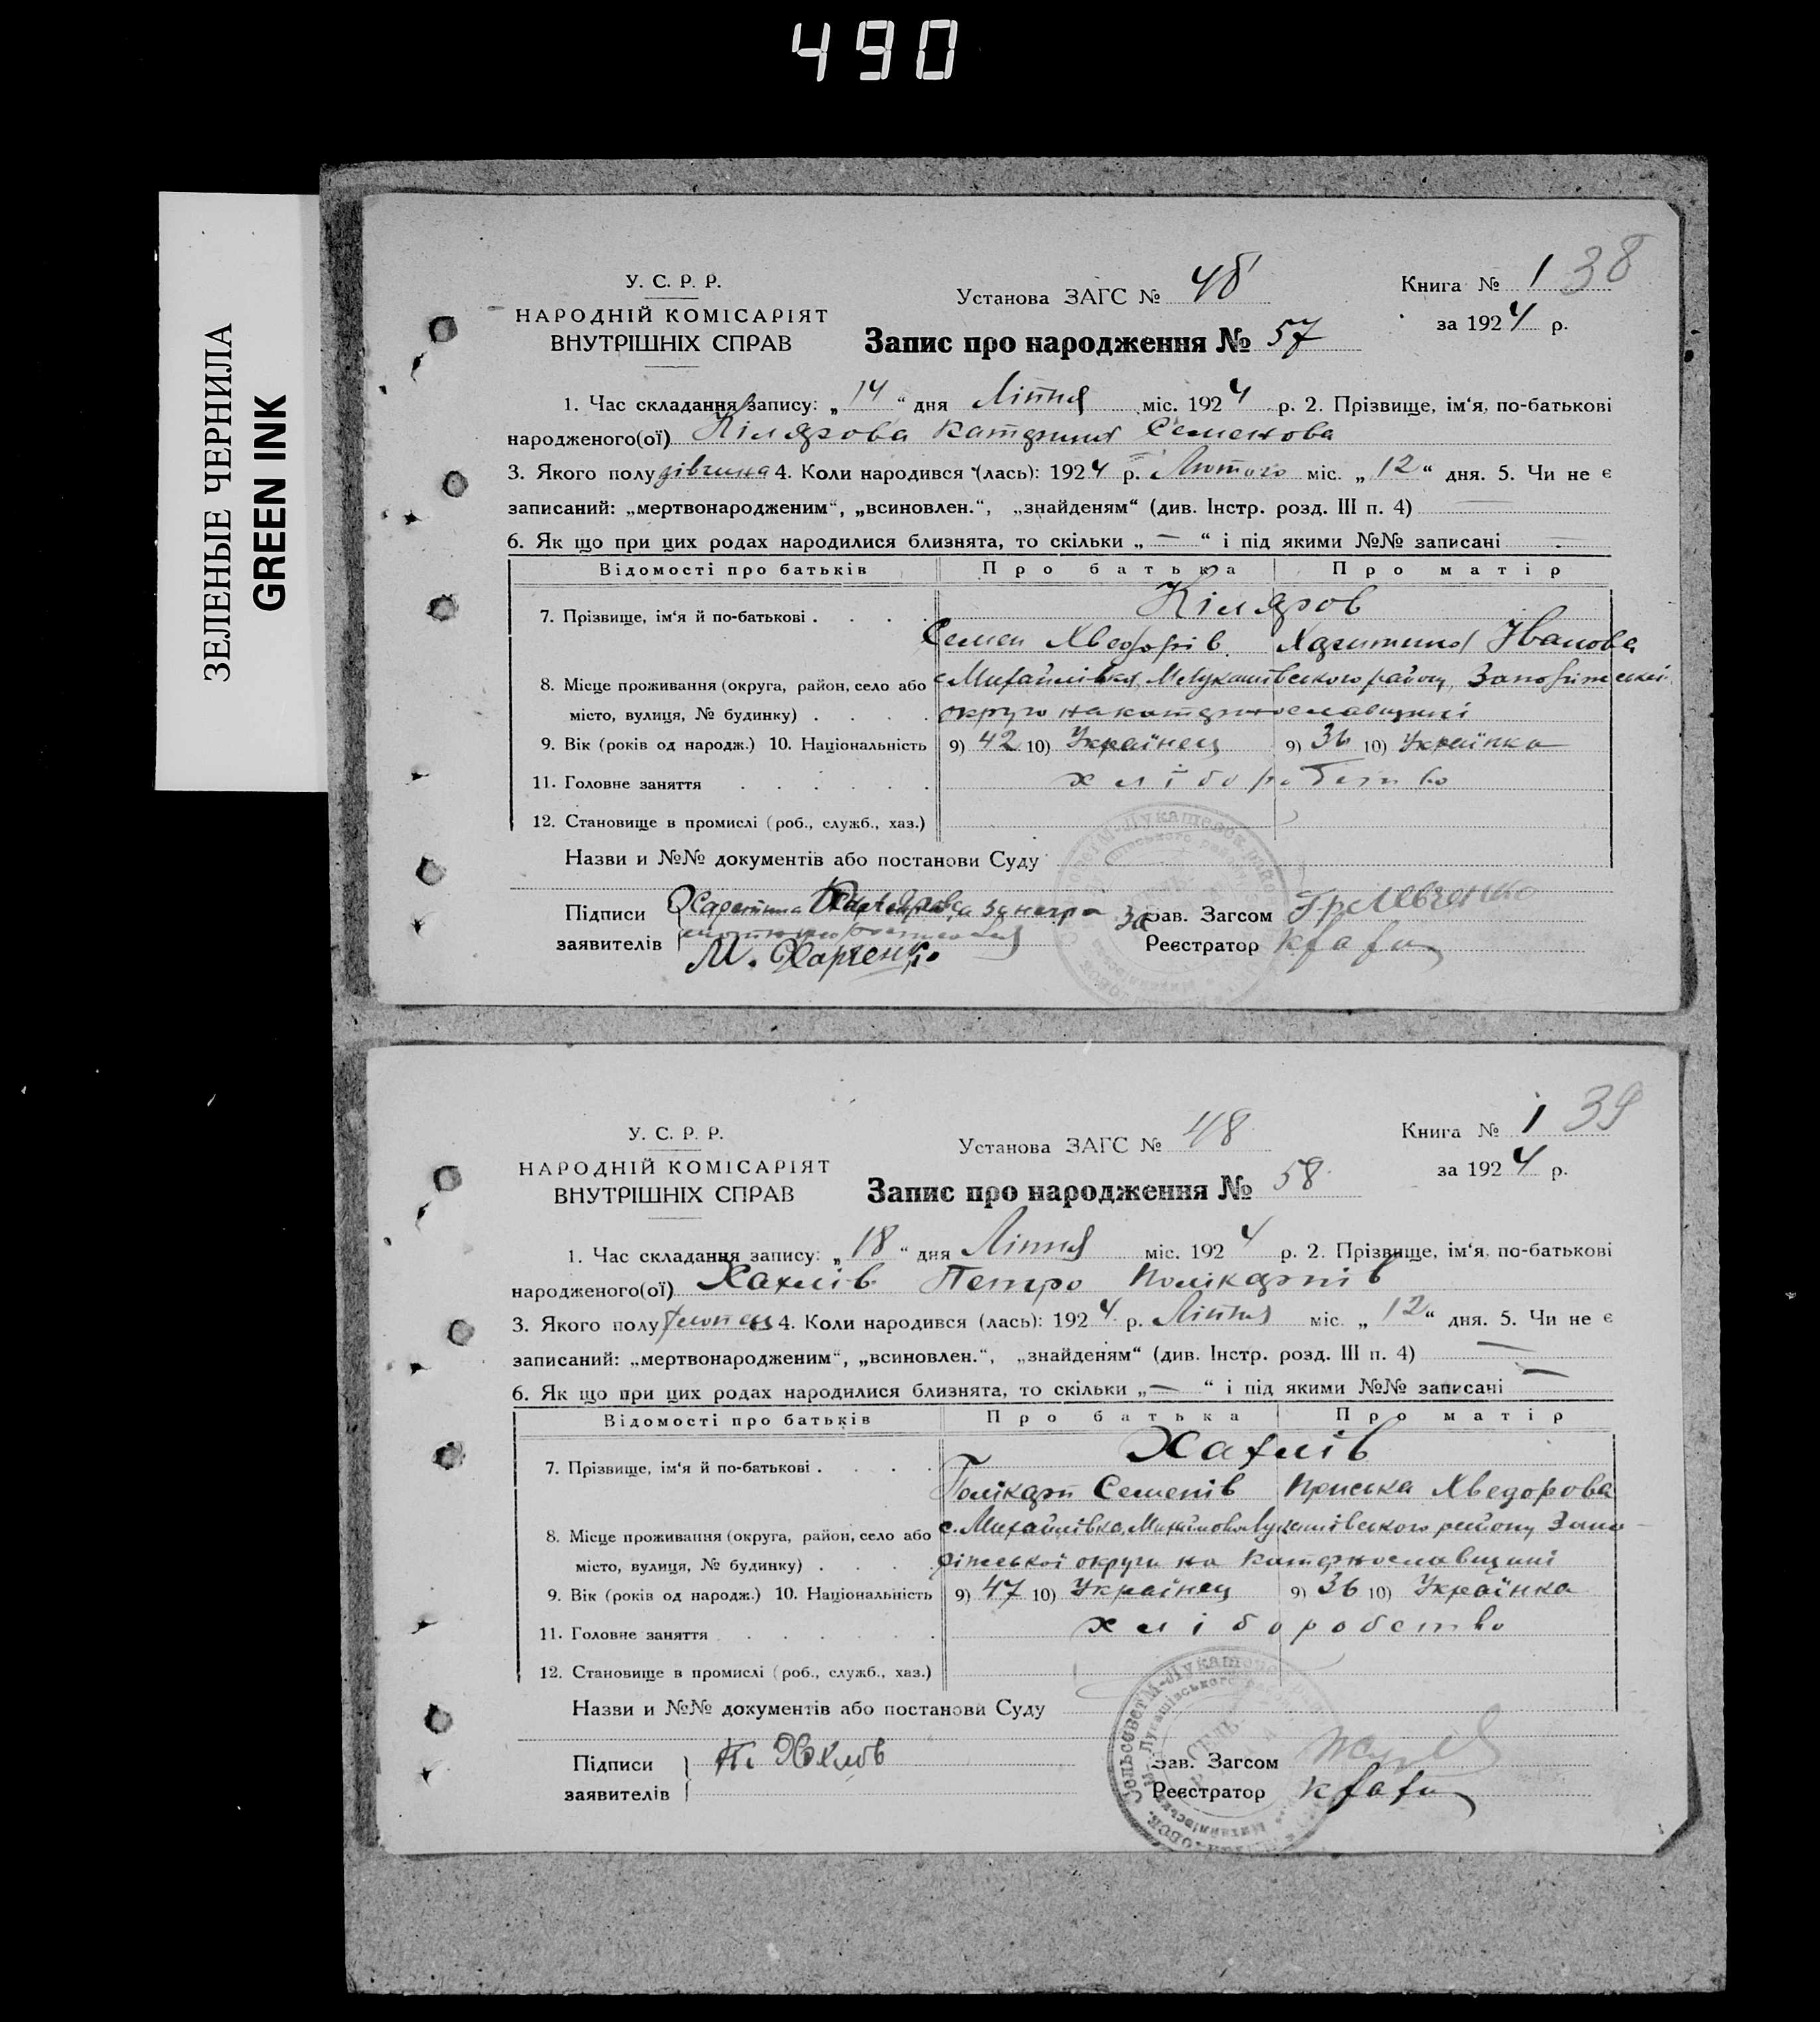 490
ЗЕЛЕНЫЕ ЧЕРНИЛА
GREEN INK
38
У. С. Р. Р.
НАРОДНІЙ КОМІСАРІЯТ
ВНУТРІШНІХ СПРАВ
Установа ЗАГС № 48
Книга № 1
за 1924 р.
Запис про народження № 57
1. Час складання запису: „14“ дня Ліпня міс. 1924 р. 2. Прізвище, ім‘я, по-батькові
народженого(ої) Кілярова Катерина Семенова
3. Якого полу дівчина 4. Коли народився (лась): 1924 р. Лютого міс. „12“ дня. 5. Чи не є
записаний: „мертвонародженим“, „всиновлен.“, „знайденям“ (див. Інстр. розд. III п. 4) —
6. Як що при цих родах народилися близнята, то скільки „—“ і під якими №№ записані
Відомості про батьків Про батька Про матір
Кіляров
7. Прізвище, ім‘я й по-батькові . . . .
Семен Хведорів Харитина Іванова
8. Місце проживання (округа, район, село або
с Михайлівка, Лукашівського району, Запоріжської
місто, вулиця, № будинку) . . . . округи на катеринославщині
9. Вік (років од народж.) 10. Національність 9) 42 10) Українец 9) 36 10) Українка
11. Головне заняття . . . . . . хліборобство
12. Становище в промислі (роб., служб., хаз.)
Назви и №№ документів або постанови Суду
Підписи
заявителів
М. Харченко
За Зав. Загсом Гр Левченко
Реєстратор
39
У. С. Р. Р.
НАРОДНІЙ КОМІСАРІЯТ
ВНУТРІШНІХ СПРАВ
Установа ЗАГС № 48
Книга № 1
за 1924 р.
Запис про народження № 58
1. Час складання запису: „18“ дня Ліпня міс. 1924 р. 2. Прізвище, ім‘я, по-батькові
народженого(ої) Хахлів Петро Полікарпів
3. Якого полу хлопець 4. Коли народився (лась): 1924 р. Ліпня міс. „12“ дня. 5. Чи не є
записаний: „мертвонародженим“, „всиновлен.“, „знайденям“ (див. Інстр. розд. III п. 4) —
6. Як що при цих родах народилися близнята, то скільки „—“ і під якими №№ записані —
Відомості про батьків Про батька Про матір
Хахлів
7. Прізвище, ім‘я й по-батькові . . . .
Полікарп СеменівПриська Хведорова
8. Місце проживання (округа, район, село або
с. Михайлівка, району Запо-
місто, вулиця, № будинку) . . . . ріжської округи на Катеринославщині
9. Вік (років од народж.) 10. Національність 9) 47 10) Українец 9) 36 10) Українка
11. Головне заняття . . . . . . хліборобство
12. Становище в промислі (роб., служб., хаз.)
Назви и №№ документів або постанови Суду
Підписи
заявителів
П. Хахлов
Зав. Загсом
Реєстратор